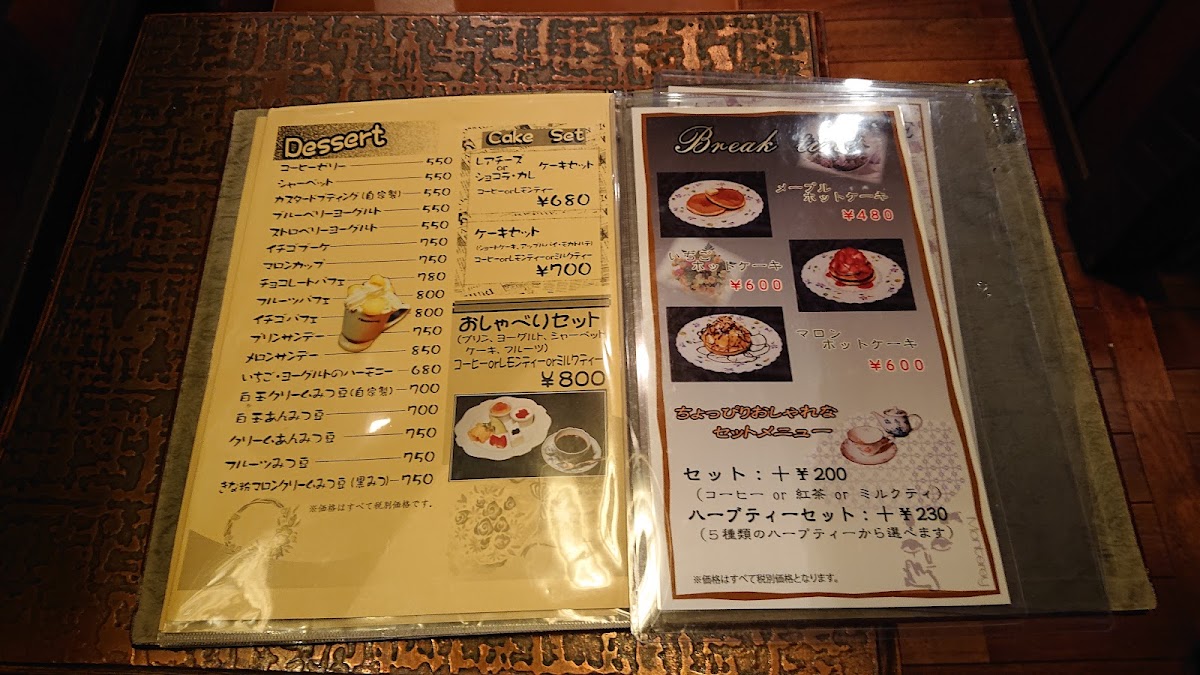 Dessert
コーヒーゼリー 550
シャーベット 550
カスタードプディング(自家製) 550
ブルーベリーヨーグルト 550
ストロベリーヨーグルト 550
イチゴブーケ 750
マロンカップ 750
チョコレートパフェ 780
フルーツパフェ 800
イチゴパフェ 800
プリンサンデー 750
メロンサンデー 850
いちご・ヨーグルトのハーモニー 680
白玉クリームみつ豆(自家製) 700
白玉あんみつ豆 700
クリームあんみつ豆 750
フルーツみつ豆 750
きな粉マロンクリームみつ豆(黒みつ) 750
※価格はすべて税別価格です。
Cake Set
レアチーズ
or
ショコラ・カレ
ケーキセット
コーヒーorレモンティー
¥680
ケーキセット
(ショートケーキ、アップルパイ・モカトルテ)
コーヒーorレモンティーorミルクティー
¥700
おしゃべりセット
(プリン、ヨーグルト、シャーベット
ケーキ、フルーツ)
コーヒーorレモンティーorミルクティー
¥800
Break
メープル
ホットケーキ
¥480
いちご
ホットケーキ
¥600
マロン
ホットケーキ
¥600
ちょっぴりおしゃれな
セットメニュー
セット：＋¥200
(コーヒー or 紅茶 or ミルクティ)
ハーブティーセット：＋¥230
(５種類のハーブティーから選べます)
※価格はすべて税別価格となります。